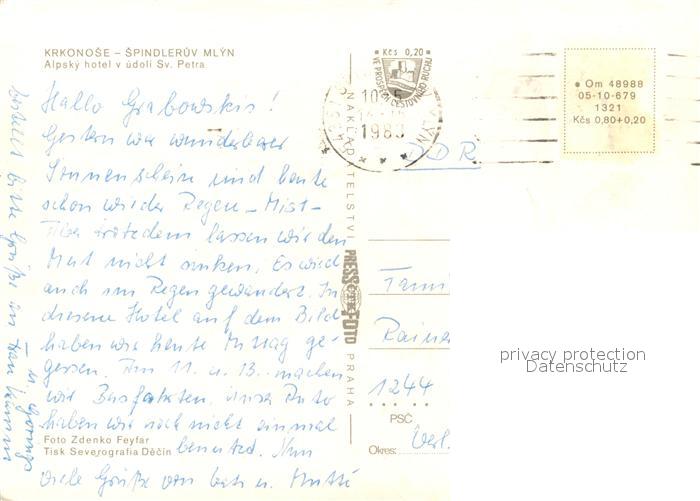 KRKONOŠE – ŠPINDLERŮV MLÝN
Alpský hotel v údolí Sv. Petra
Hallo Grabowskis!
Gestern war wunderbarer
Sonnenschein und heute
schon wieder Regen – Mist –
Aber trotzdem lassen wir den
Mut nicht sinken. Es wird
auch im Regen gewandert. In
diesem Hotel auf dem Bild
haben wir heute Mittag ge-
gessen. Am 11. u. 13. machen
wir Busfahrten. Unser Auto
haben wir noch nicht einmal
benutzt. Nun
viele Grüße von u. Mutti
bitte Grüße an Frau
u.
Foto Zdenko Feyfar
Tisk Severografia Děčín
NAKLADATELSTVÍ
PRESSFOTO
PRAHA
Kčs 0,20
VE PROSPĚCH CESTOVNÍHO RUCHU
Om 48988
05-10-679
1321
Kčs 0,80+0,20
DDR
Fam
Raine
1244
PSČ
Okres:
privacy protection
Datenschutz